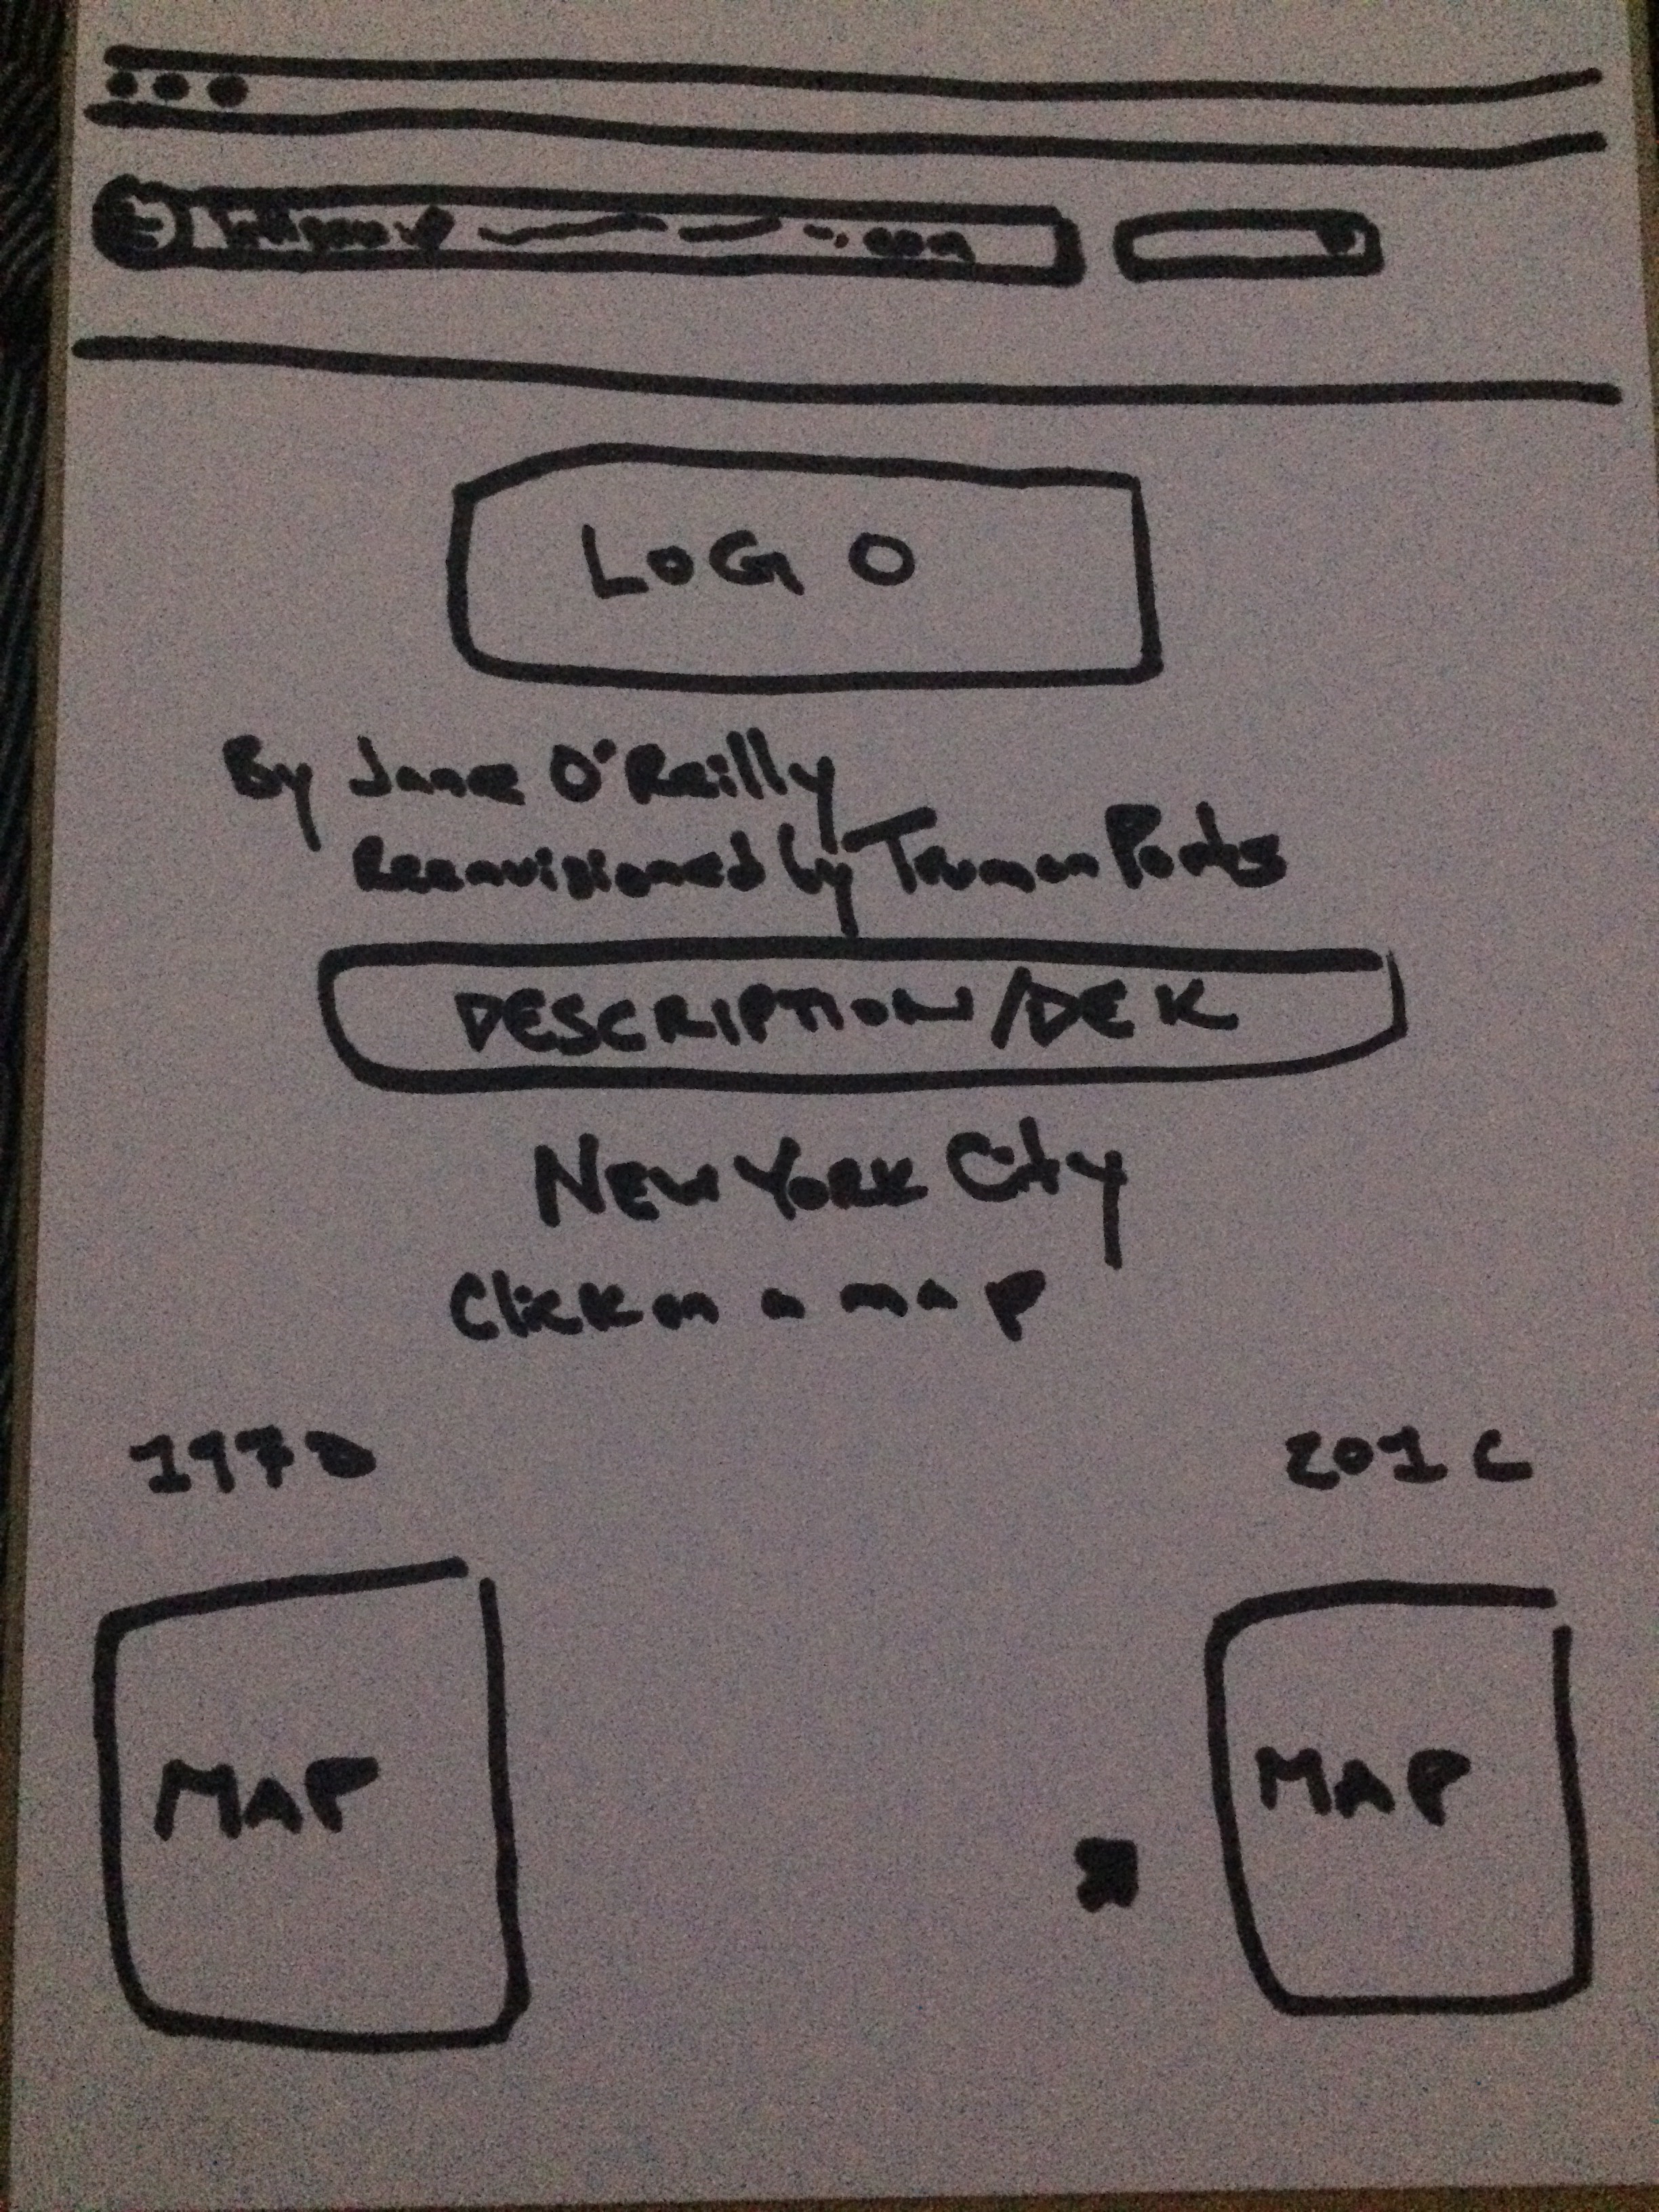 .com
LOGO
By Jane O'Reilly
Reenvisioned by Truman Ports
DESCRIPTION/DEK
NEW YORK City
Click on a map
197
201
MAP
MAP